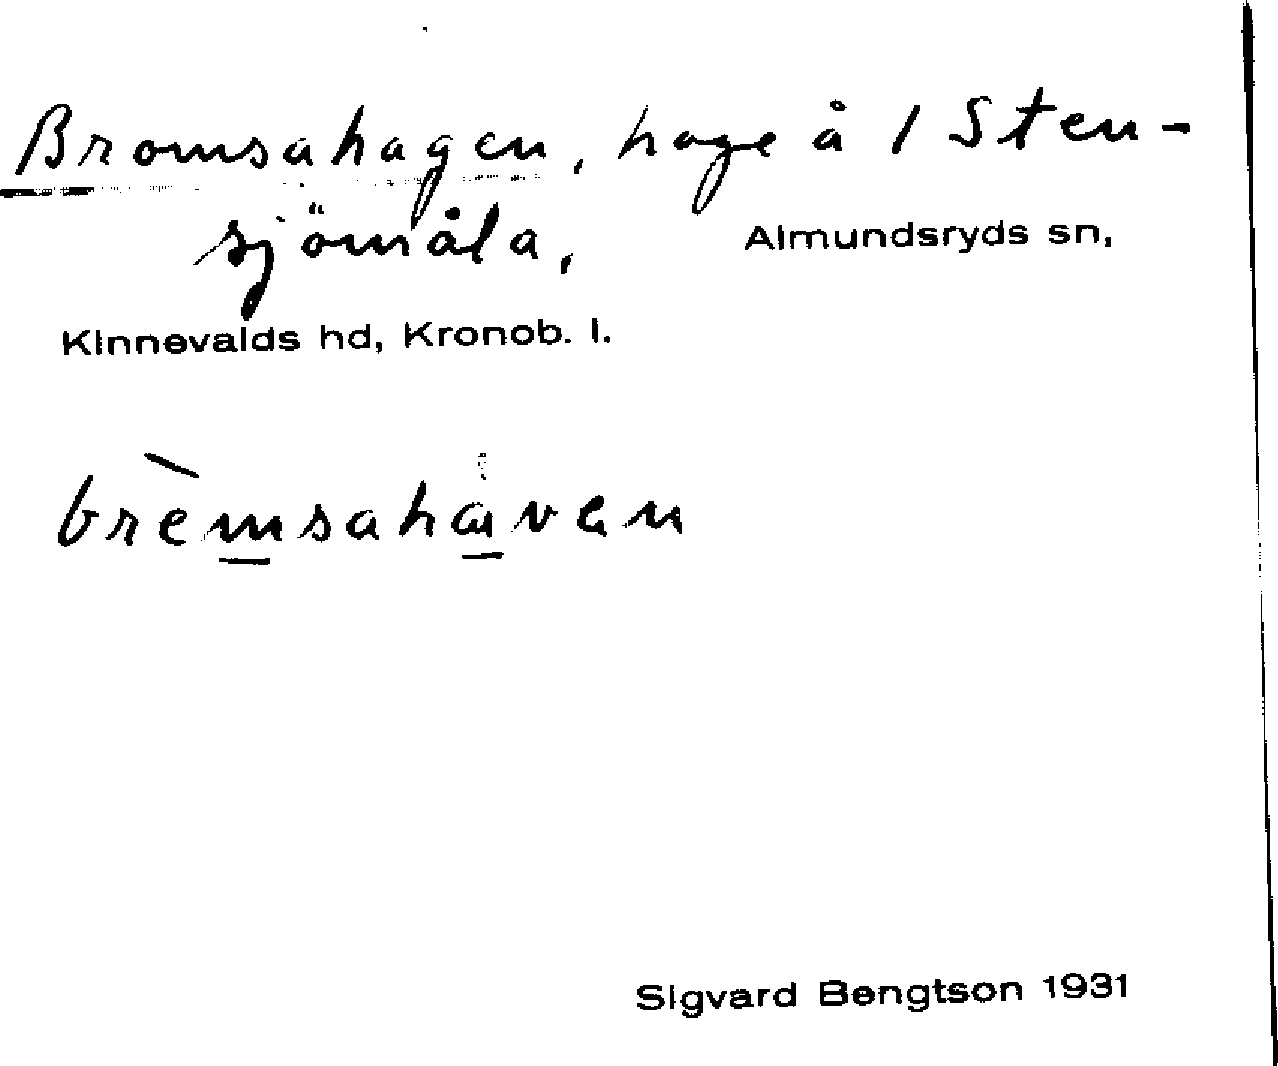 Bromsahagen, hage å 1 Sten-
sjömåla, Almundsryds sn,
Kinnevalds hd, Kronob. l.
brèmsahavan
Sigvard Bengtson 1931